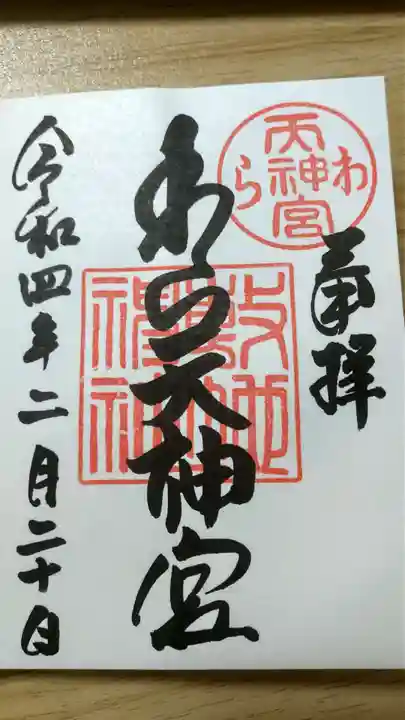 奉拝
わら
天神宮
わら天神宮
令和四年二月二十日